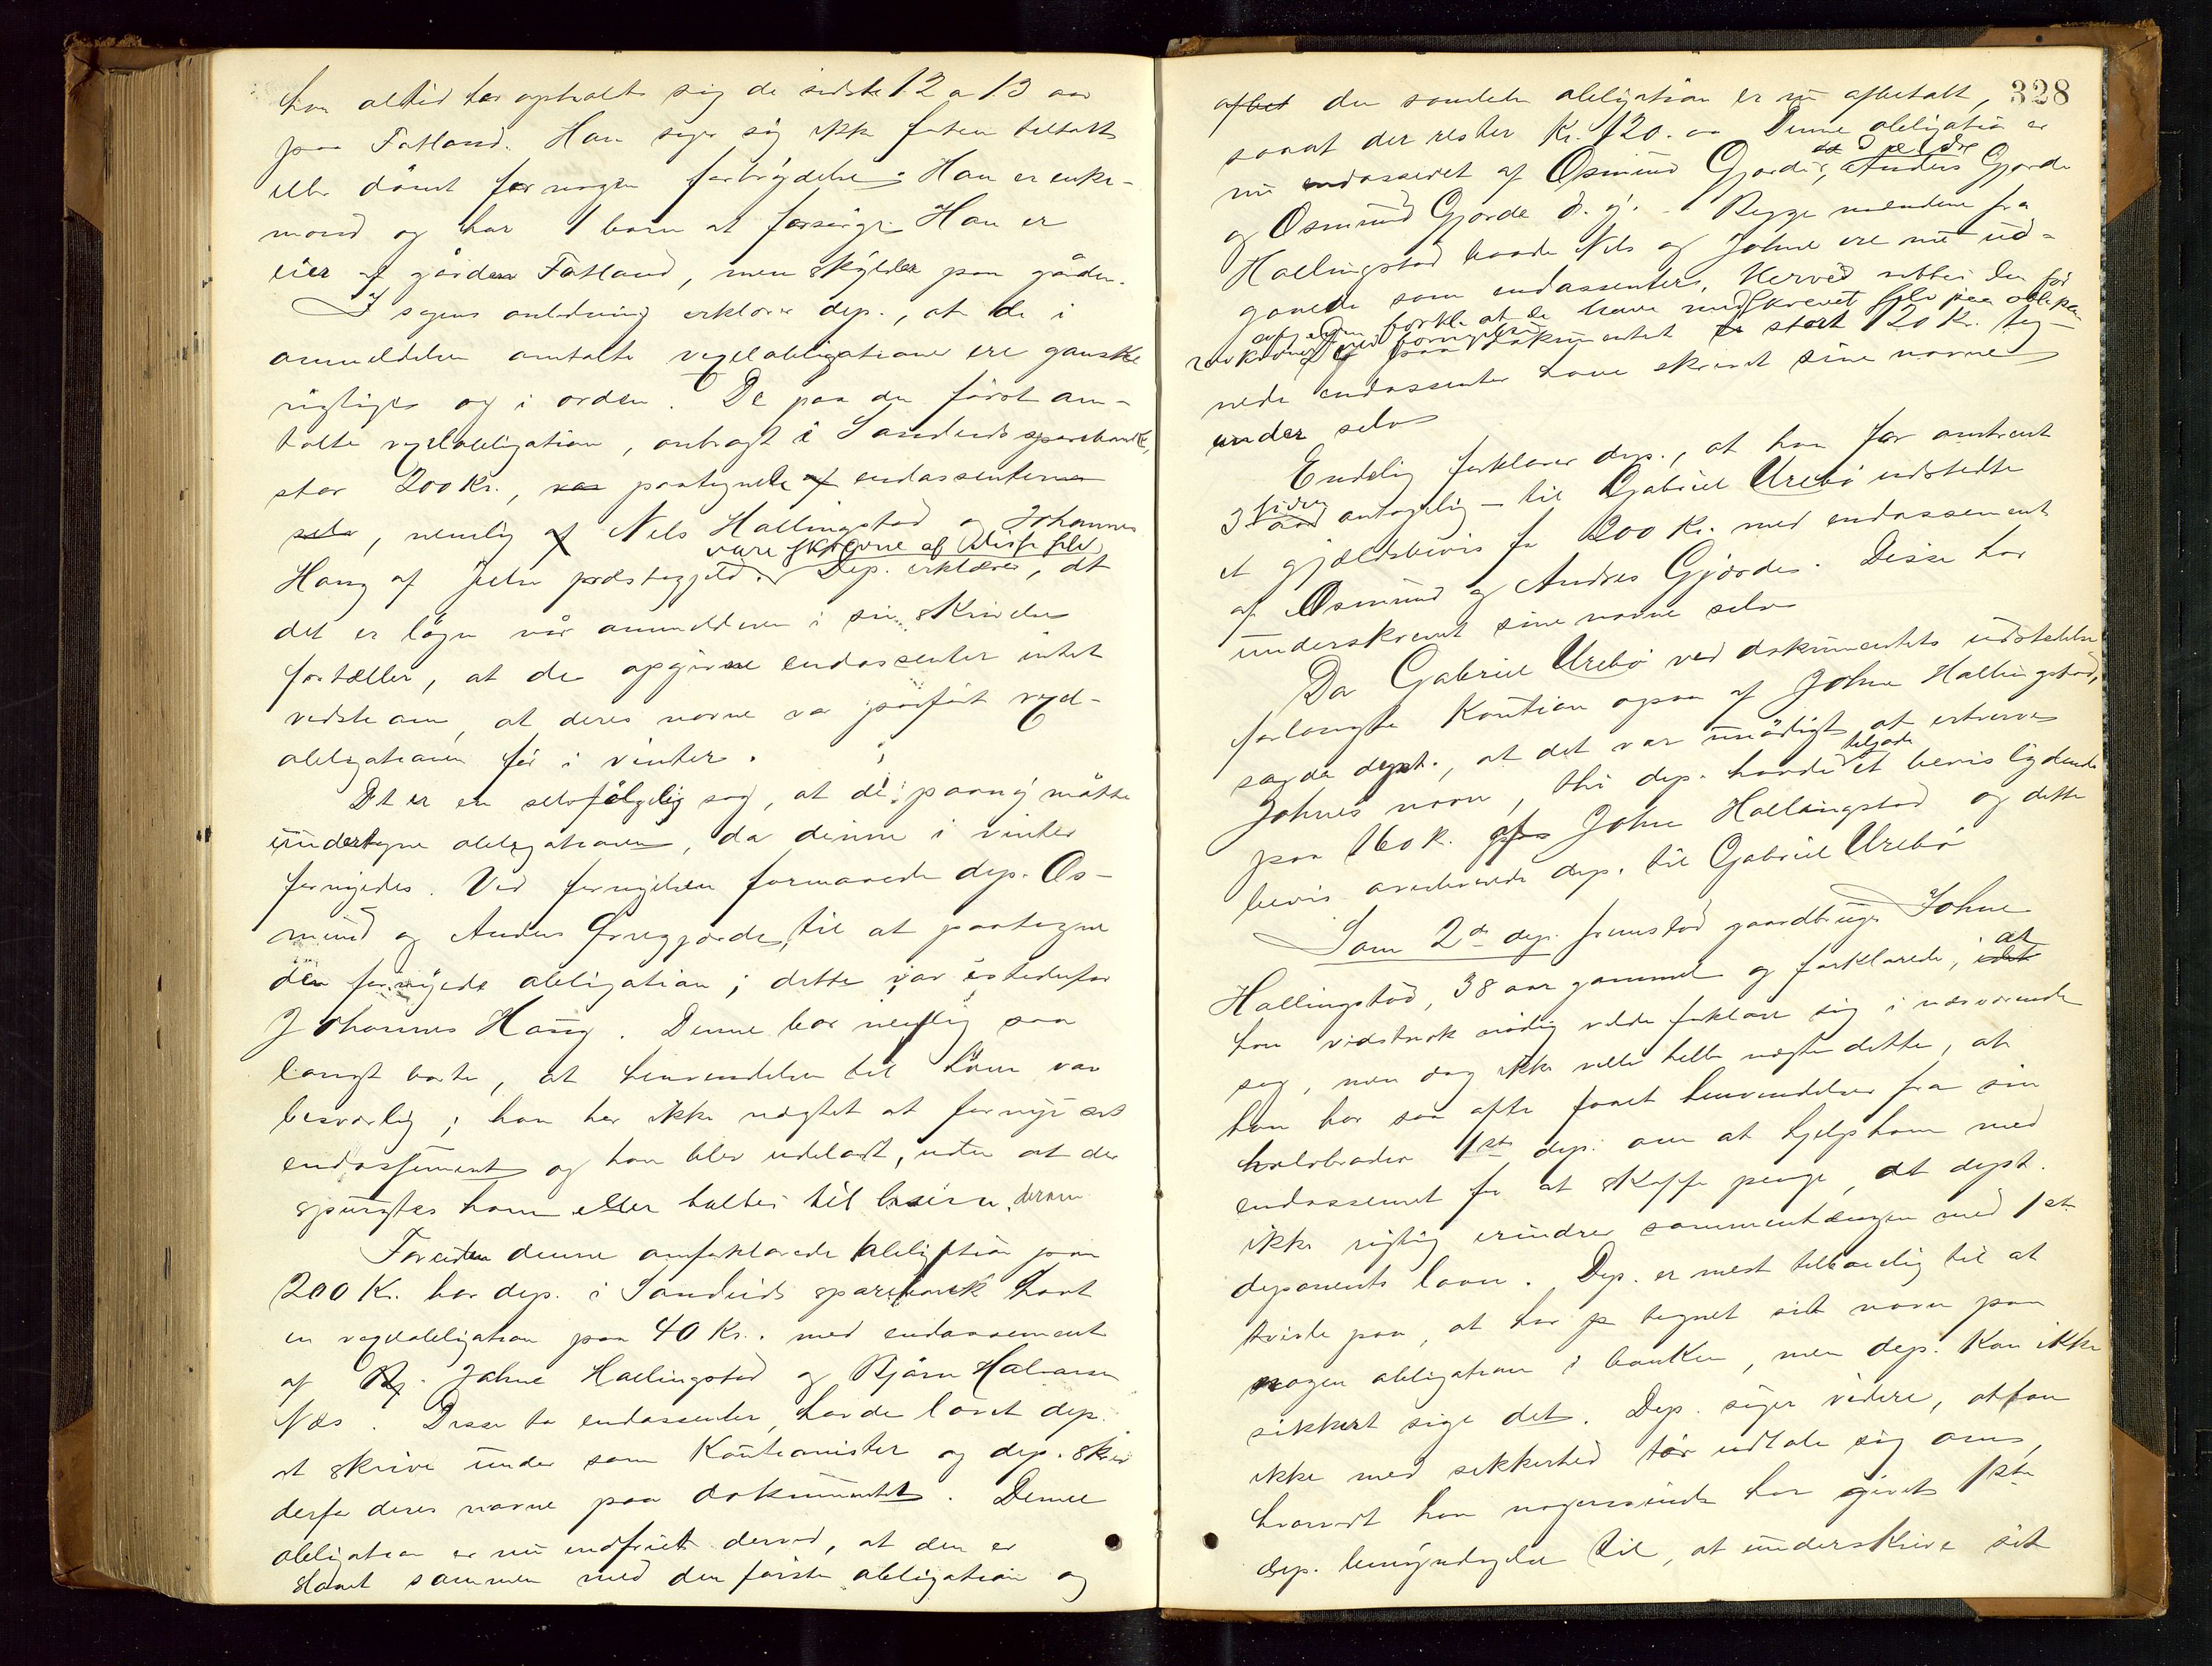 han altid har opholdt sig de sidste 12 a 13 aar
paa Fatland. Han siger sig ikke før tiltalt
eller dömt for nogen forbrydelse. Han er enke-
mand og har 1 barn at forsörge. Han er
eier af gården Fatland, men skylder paa gården.
I sagens anledning erklærer dep., at de i
anmeldelsen omtalte vexelobligationer ere ganske
rigtige og i orden. De paa den först om-
talte vexelobligation, anbragt i Sandeids sparebank,
stor 200 Kr., var paategnede af endossenterne
selv, nemlig af Nels Hallingstad og Johannes
vare skrevne af disse selv
Haug af Jelse præstegjeld. Dep. erklærer, at
det er lögn når anmelderen i sin skrivelse
fortæller, at de opgivne endossenter intet
vidste om, at deres navne var påfört vexel-
obligationen för i vinter.
Det er en selvfölgelig sag, at de paany måtte
undertegne obligationen, da denne i vinter
fornyedes. Ved fornyelsen formaaede dep. Os-
mund og Anders Gjorde, til at paategne
den fornyede obligation; dette var istedenfor
Johannes Haug. Denne bor nemlig saa
langt borte, at henvendelse til ham var
besværlig; han har ikke nægtet at fornye sit
endossement og han blev udeladt, uden at der
spurgtes ham eller taltes til ham derom
Foruden denne omforklarede obligation paa
200 Kr. har dep. i Sandeids sparebank havt
en vexelobligation paa 40 Kr. med endossement
af Johne Hallingstad og Björn Halvorsen
Næs. Disse to endossenter havde lovet dep.
at skrive under som Kautionister og dep. skrev
derfor deres navne paa dokumentet. Denne
obligation er nu indfriet derved, at den er
slaaet sammen med den förste obligation og
328
afbet den samlede obligation er nu afbetalt,
saaat der rester Kr. 120.00 Denne obligation er
d. ældre
nu endosseret af Osmund Gjorde, Anders Gjorde
og Osmund Gjorde d. y. - Begge mændene fra
Hallingstad baade Nels og Johne ere nu ud-
gaaede som endossenter. Herved
dokumentet stort 120 Kr. teg-
nede endossenter have skrevet sine navne
under selv
Endelig forklarer dep., at han for omtrent
siden
3 aar antagelig - til Gabriel Urebö udstedte
et gjældsbevis for 200 Kr. med endossement
af Osmund og Andres Gjorde. Disse har
underskrevet sine navne selv
Da Gabriel Urebö ved dokumentets udstedelse
forlangte Kaution ogsaa af Johne Hallingstad,
sagde dept., at det var unödigt at erhverve
tilgode
Johnes navn, thi dep. havde et bevis lydende
paa 160 K. af Johne Hallingstad og dette
bevis overleverede dep. til Gabriel Urebö
Som 2de dep. fremstod gaardbruger Johne
at
Hallingstad, 38 aar gammel og forklarede, idet
han vidstnok nödig vilde forklare sig i nærværende
sag, men dog ikke vilde heller nægte dette, at
han har saa ofte faaet henvendelser fra sin
halvbroder 1ste dep. om at hjelpe ham med
endossement for at skaffe penge, at dept.
ikke rigtig erindrer sammenhængen med 1ste
deponents laan. Dep. er mest tilböielig til at
tvivle paa, at har tegnet sit navn paa
nogen obligation i banken, men dep. kan ikke
sikkert sige det. Dep. siger videre, at han
ikke med sikkerhed tör udtale sig om,
hvorvidt han nogensinde har givet 1ste
dep. bemyndigelse til, at underskrive sit